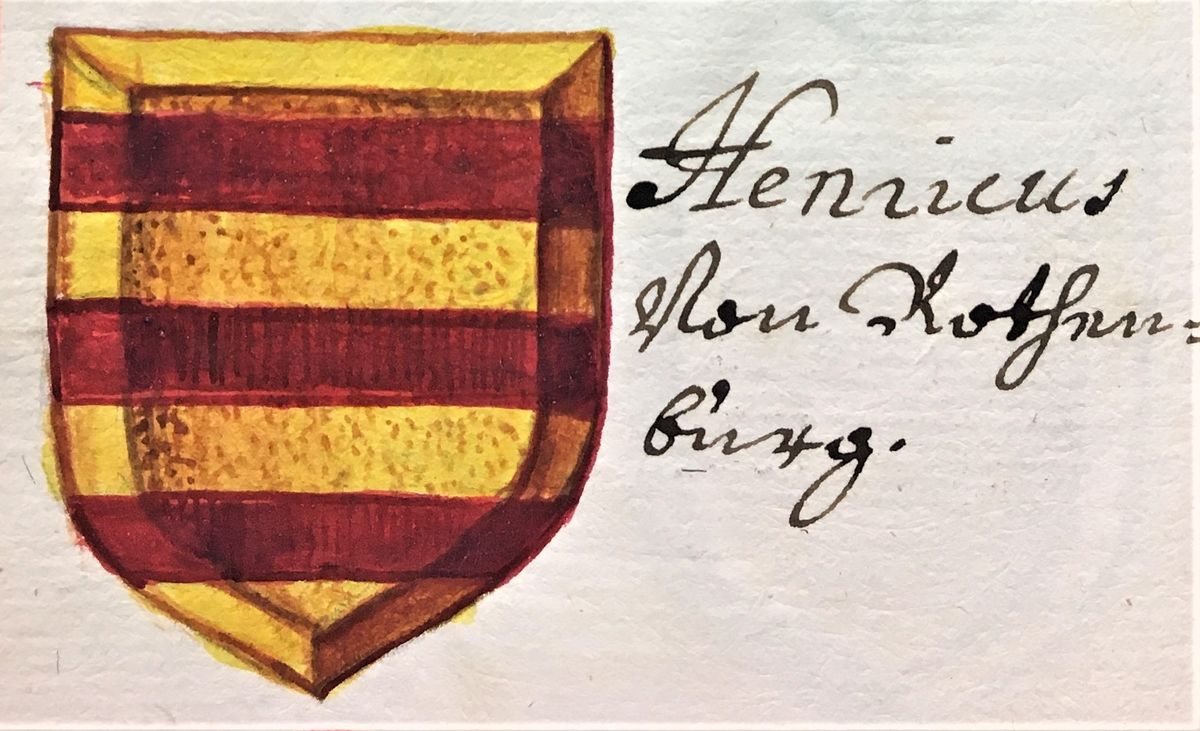 Henricus
Von Rothen:
burg.